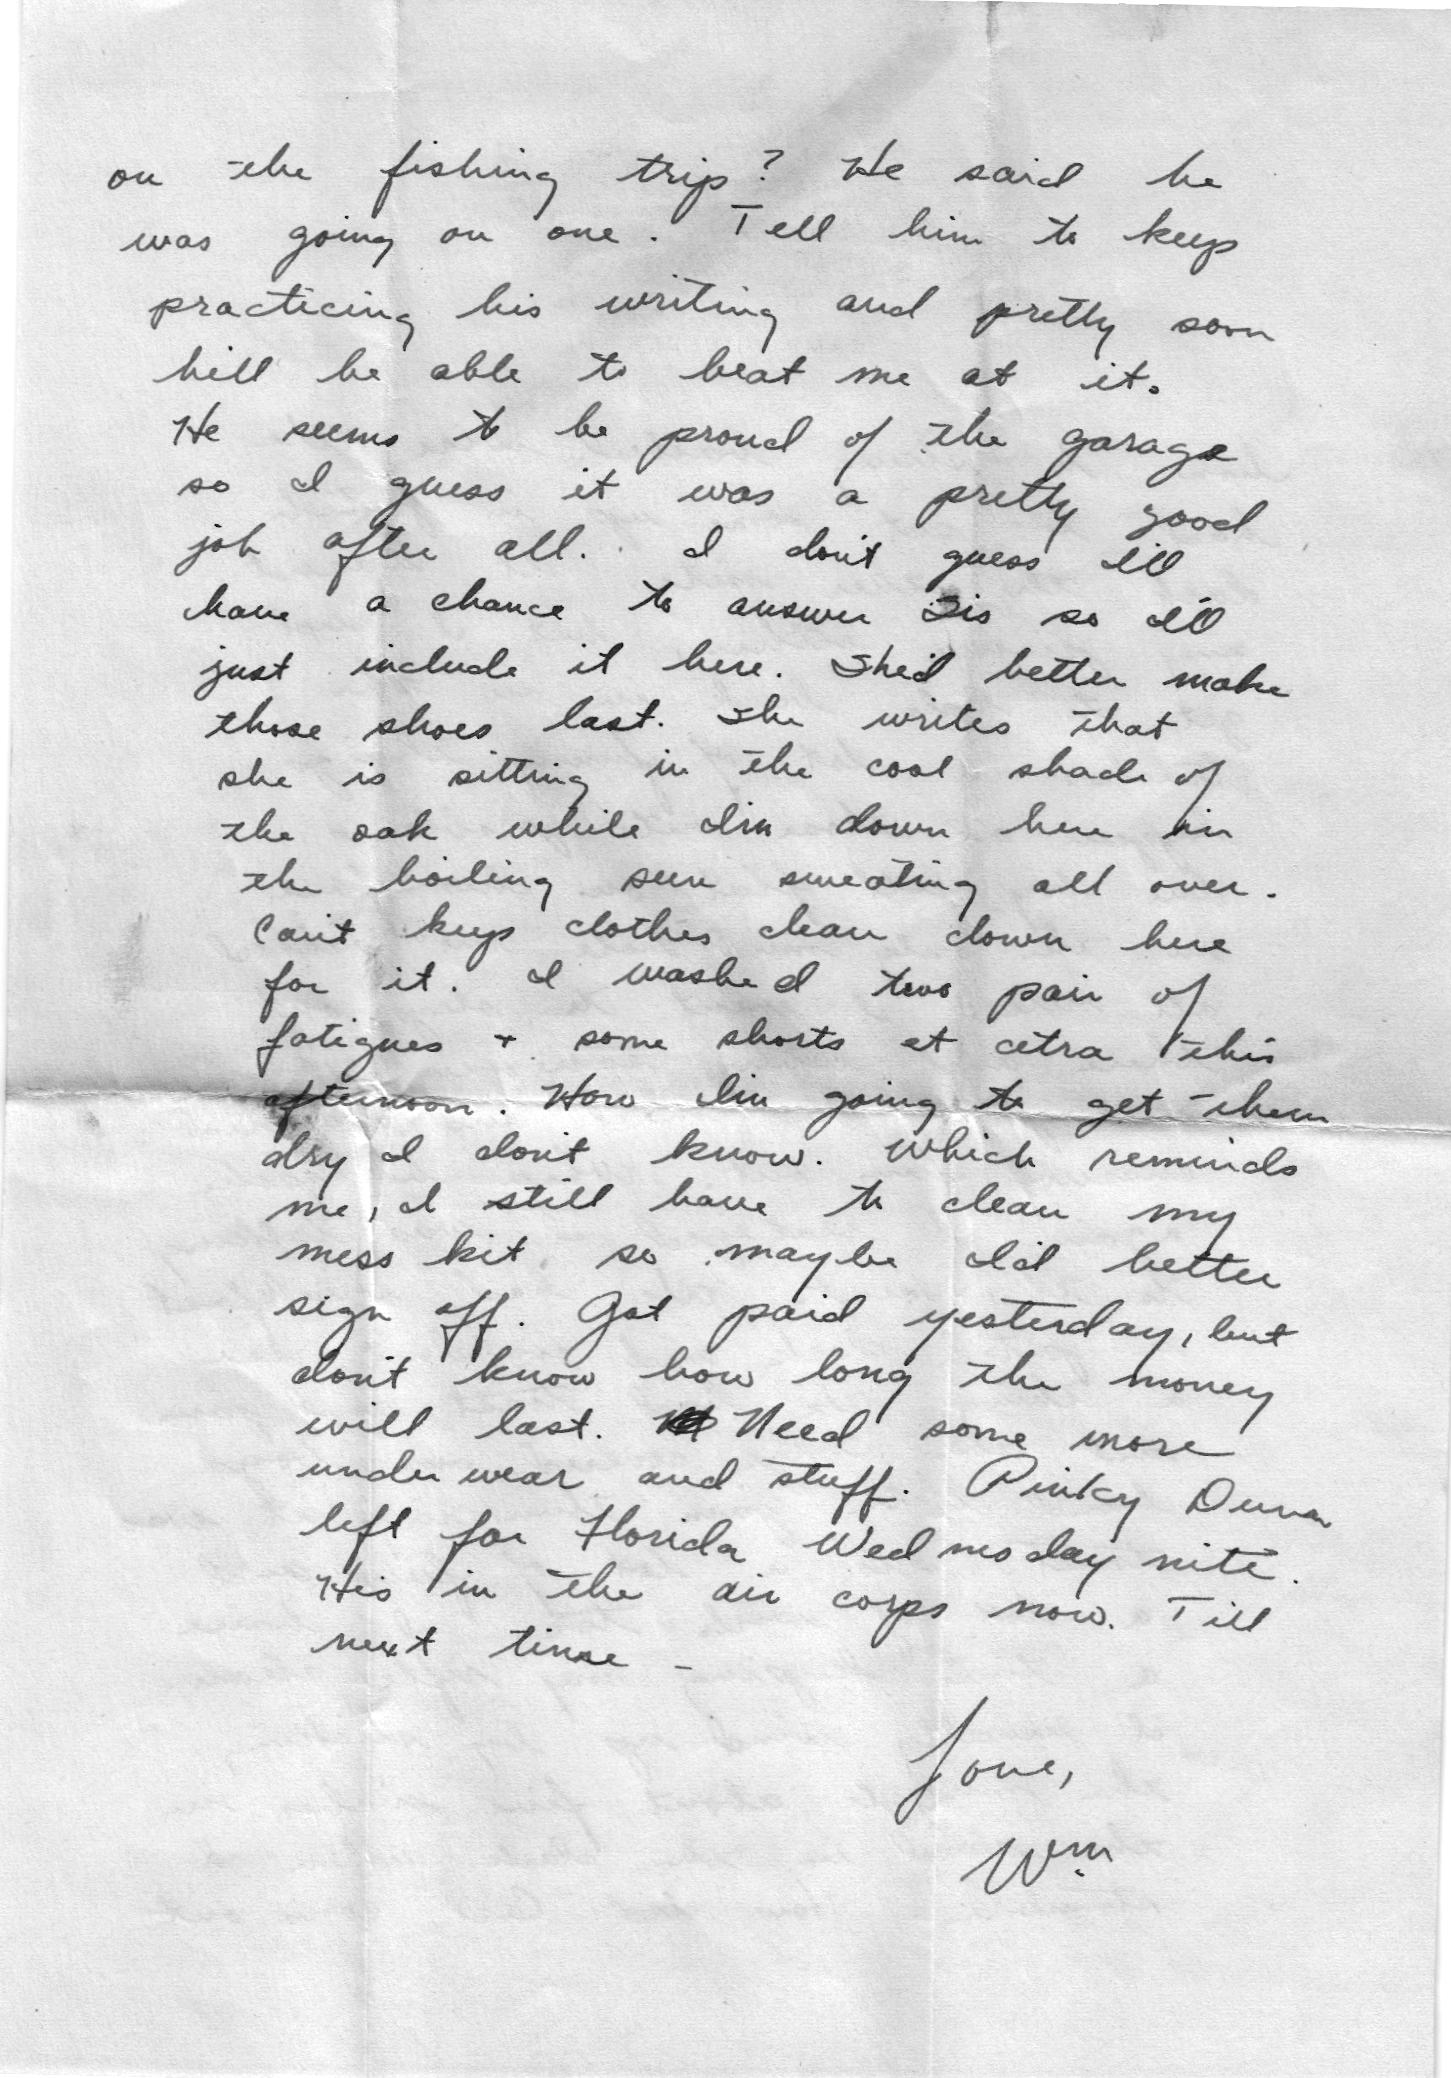 on the fishing trip? He said he
was going on one. Tell him to keep
practicing his writing and pretty soon
he'll be able to beat me at it.
He seems to be proud of the garage
so I guess it was a pretty good
job after all. I don't guess I'll
have a chance to answer Sis so I'll
just include it here. She'd better make
those shoes last. She writes that
she is sitting in the cool shade of
the oak while I'm down here in
the boiling sun sweating all over.
Can't keep clothes clean down here
for it. I washed two pair of
fatigues + some shorts et cetra this
afternoon. How I'm going to get them
dry I don't know. Which reminds
me, I still have to clean my
mess kit so maybe I'd better
sign off. Got paid yesterday, but
don't know how long the money
will last. Need some more
underwear and stuff. Pinky Dunn
left for Florida Wednesday nite.
His in the air corps now. Till
next time –
Love,
Wm